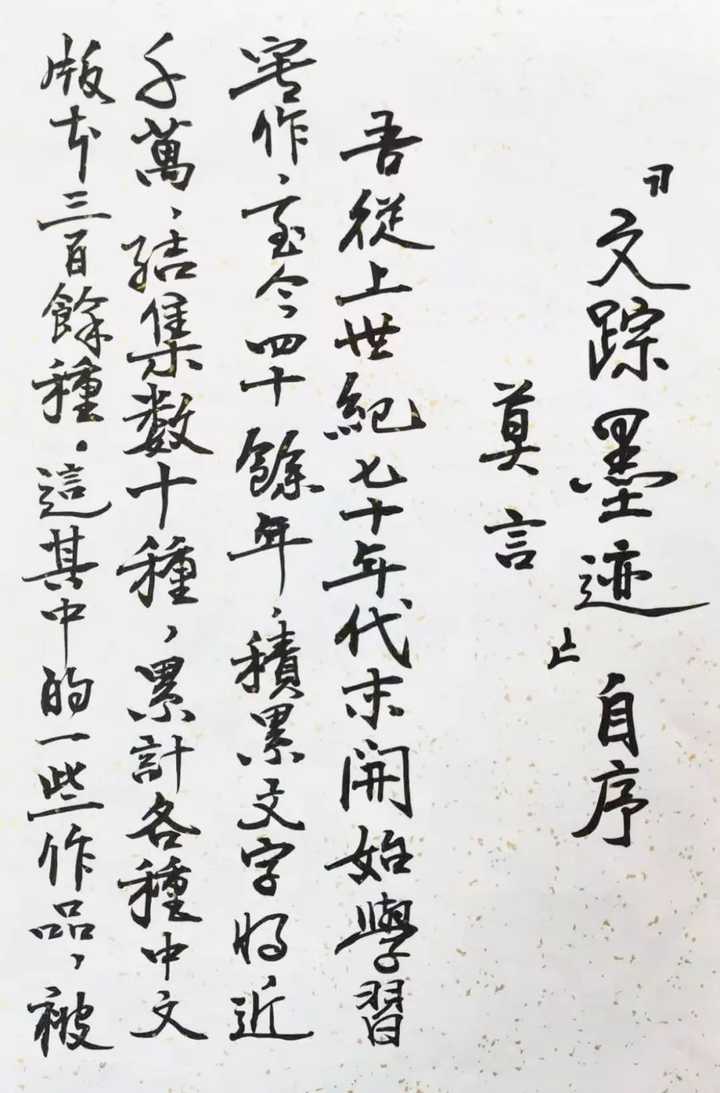 『文踪墨迹』自序
莫言
吾從上世紀七十年代末開始學習
寫作、至今四十餘年，積累文字將近
千萬、結集數十種，累計各種中文
版本三百餘種。這其中的一些作品，被